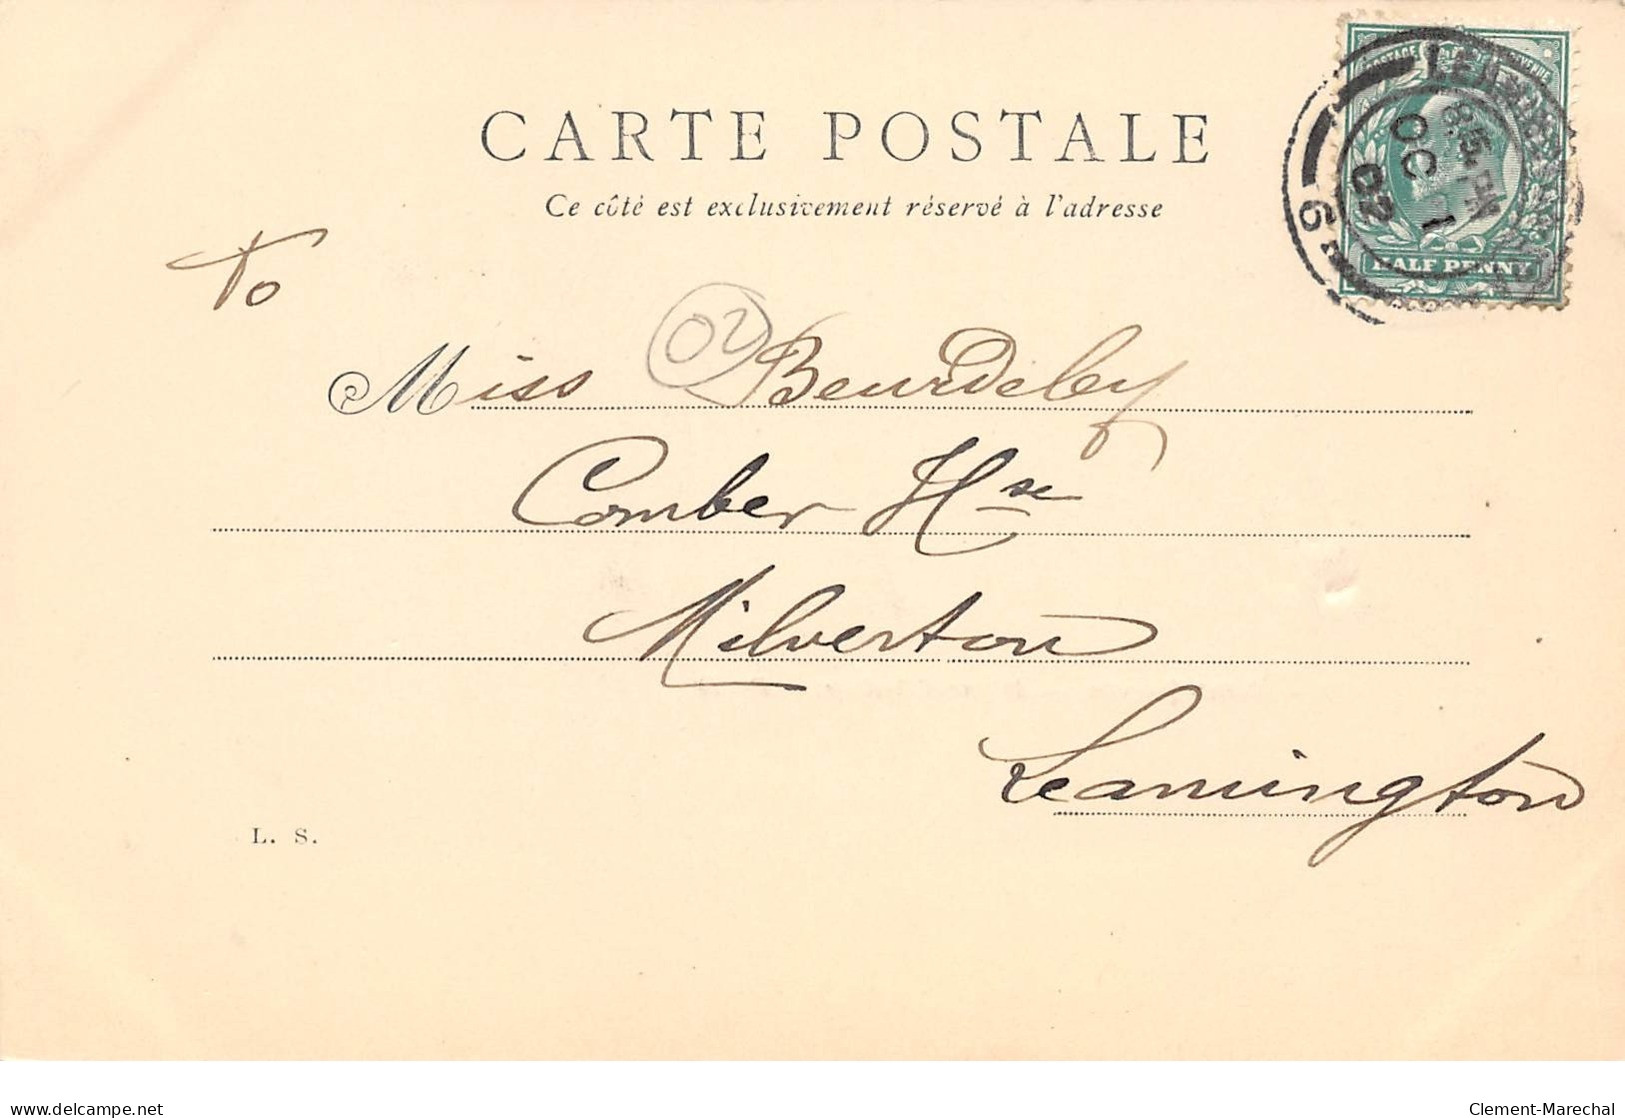 CARTE POSTALE
Ce côté est exclusivement réservé à l'adresse
POSTAGE REVENUE
8.15 PM
OC 1
02
6
HALF PENNY
To
02
Miss Beurdeley
Comber Hse
Milverton
Leamington
L. S.
delcampe.net
Clement-Marechal